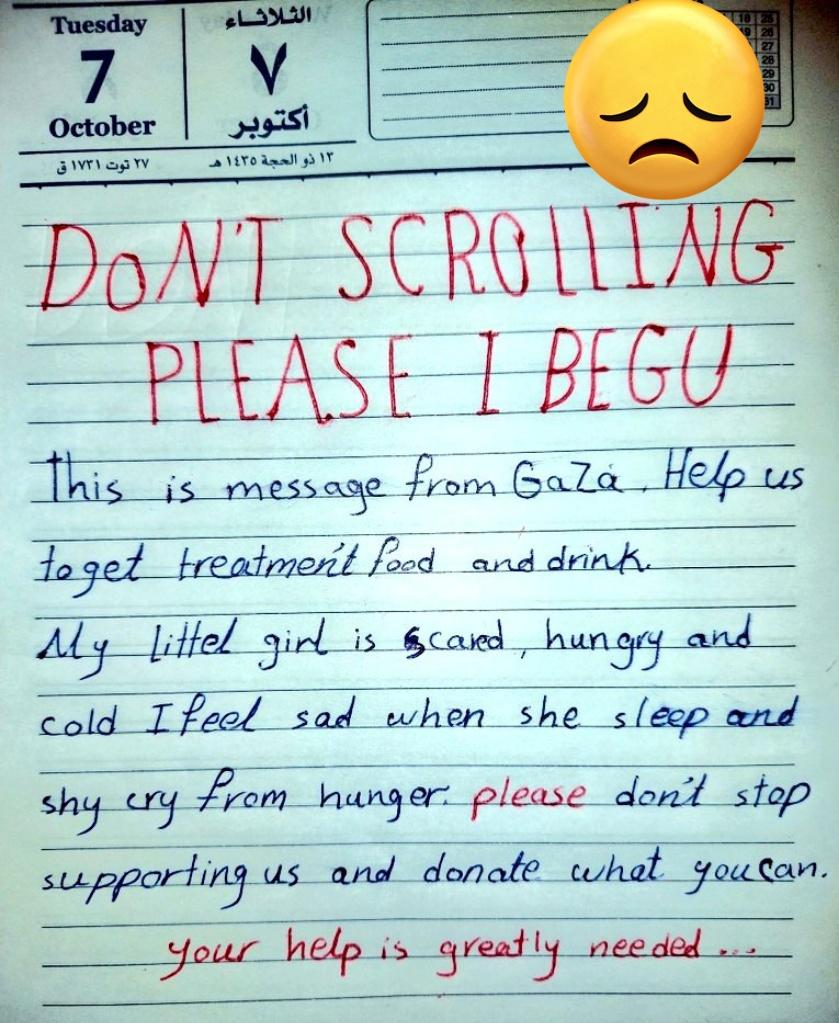 Tuesday
7
October
الثلاثاء
٧
أكتوبر
٢٧ توت ١٧٣١ ق
١٣ ذو الحجة ١٤٣٥ هـ
18 25
19 26
27
28
29
30
31
DON'T SCROLLING
PLEASE I BEGU
This is message from GaZa. Help us
to get treatment food and drink.
My littel girl is scared, hungry and
cold I feel sad when she sleep and
shy cry from hunger. please don't stop
supporting us and donate what you can.
your help is greatly needed...